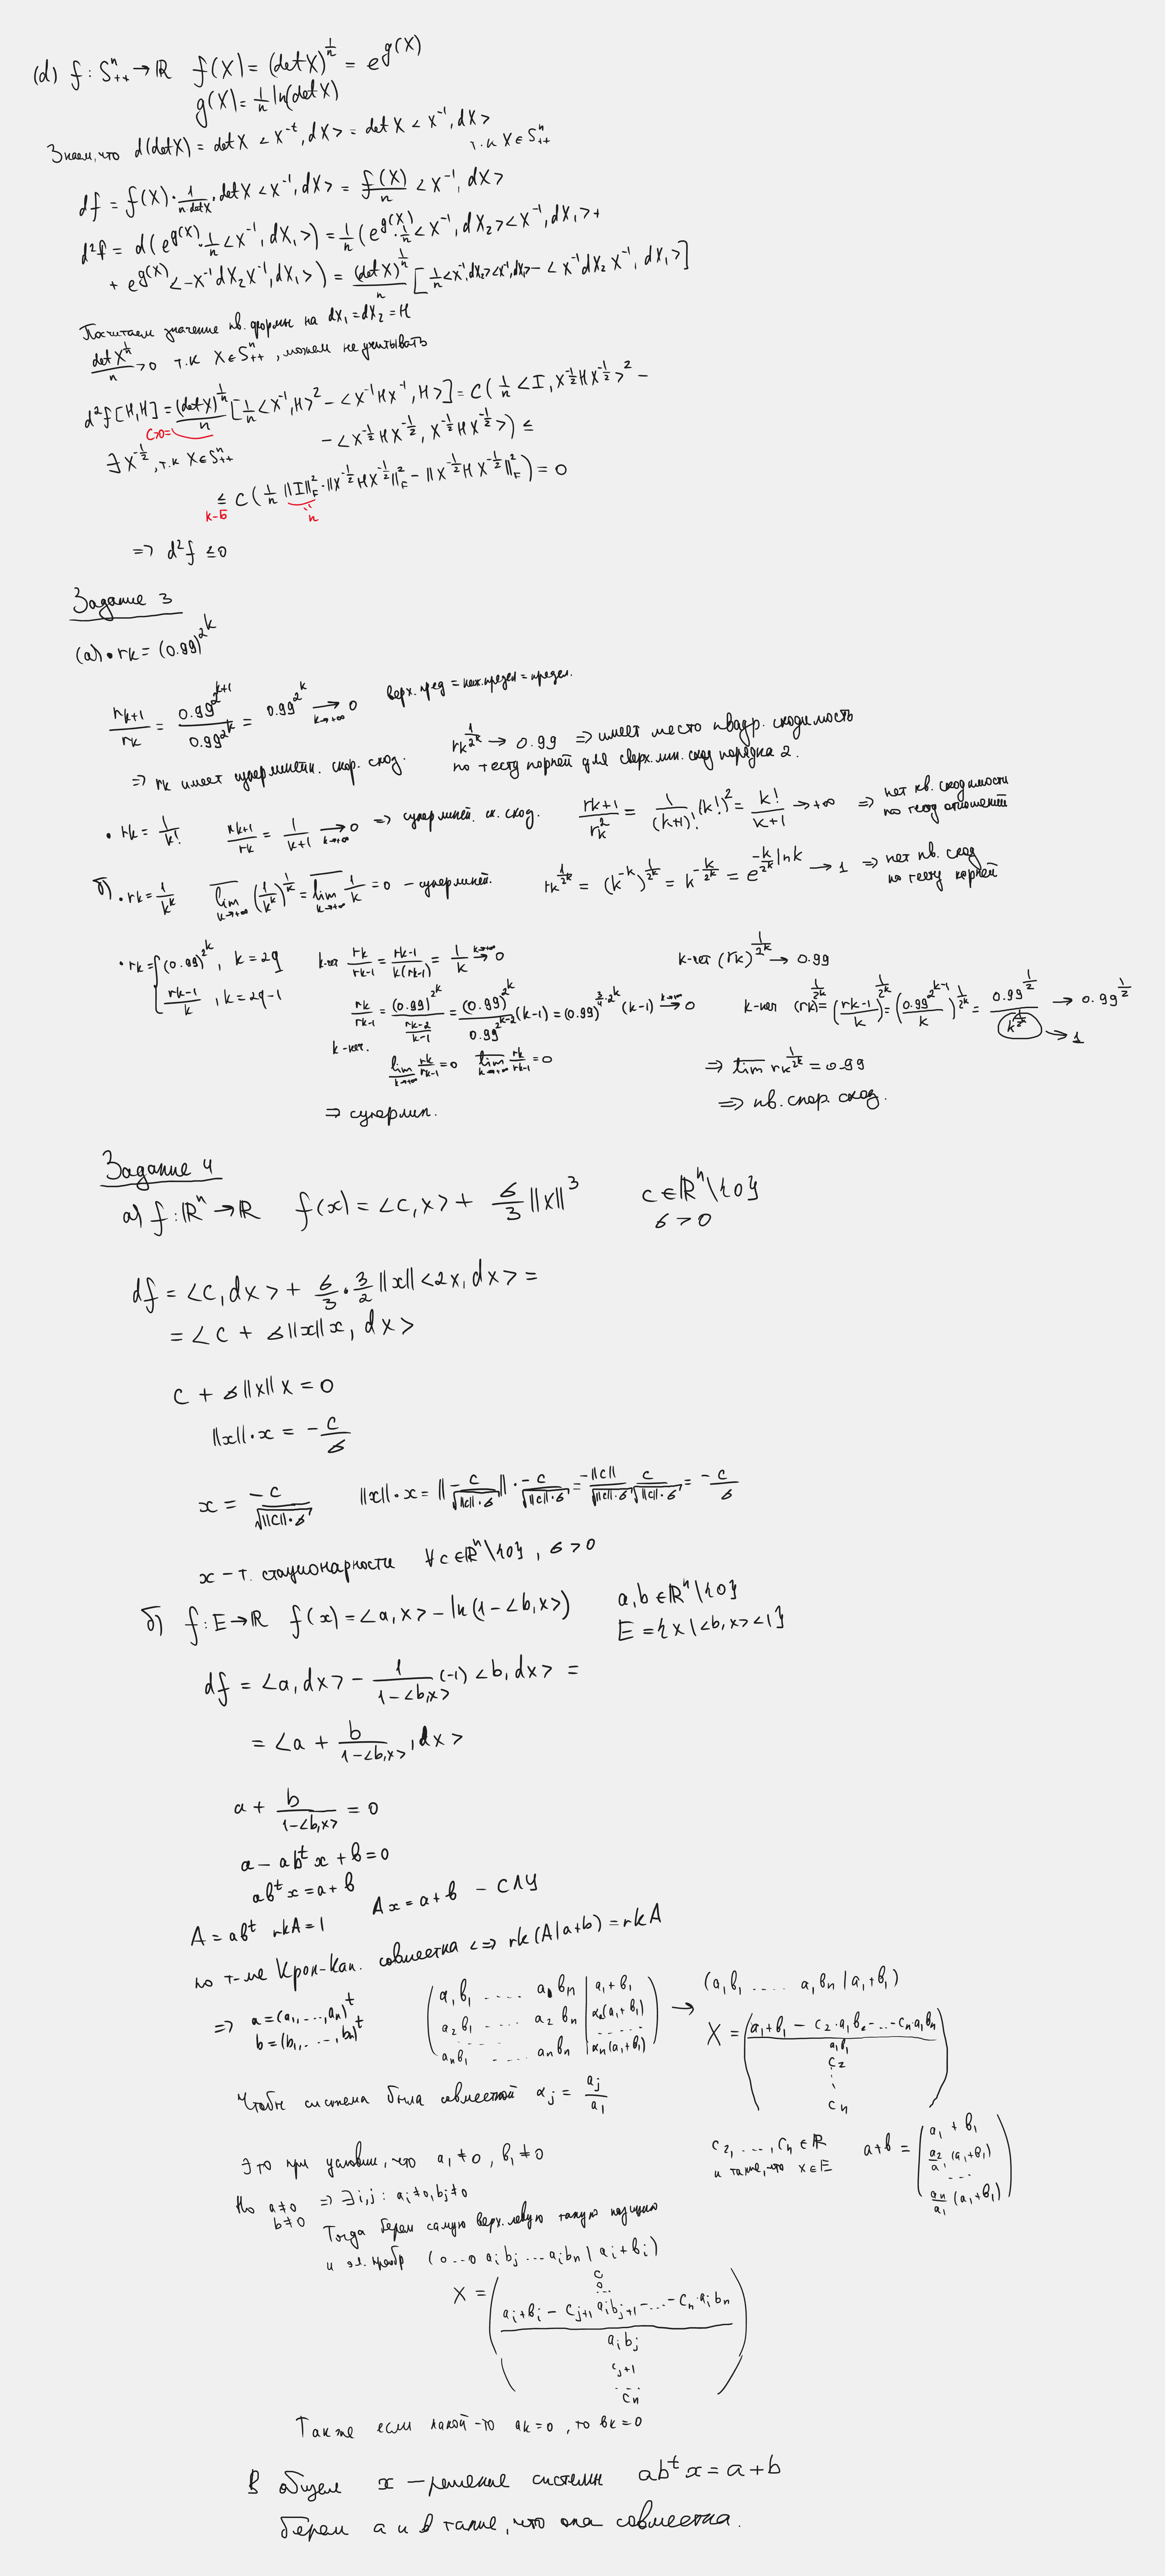 (d) f : S^n_{++} → ℝ   f(X) = (det X)^{1/n} = e^{g(X)}
g(X) = 1/n ln(det X)
Знаем, что d(det X) = det X <X^{-t}, dX> = det X <X^{-1}, dX>
т.к X ∈ S^n_{++}
df = f(X) · 1/(n·det X) · det X <X^{-1}, dX> = f(X)/n <X^{-1}, dX>
d²f = d(e^{g(X)} · 1/n <X^{-1}, dX₁>) = 1/n (e^{g(X)} · 1/n <X^{-1}, dX₂><X^{-1}, dX₁> +
+ e^{g(X)} <-X^{-1}dX₂X^{-1}, dX₁>) = (det X)^{1/n}/n [1/n <X^{-1}, dX₂><X^{-1}, dX₁> - <X^{-1}dX₂X^{-1}, dX₁>]
Посчитаем значение кв. формы на dX₁ = dX₂ = H
det X^{1/n}/n > 0 т.к X ∈ S^n_{++}, можем не учитывать
d²f[H,H] = (det X)^{1/n}/n [1/n <X^{-1}, H>² - <X^{-1}HX^{-1}, H>] = C(1/n <I, X^{-1/2}HX^{-1/2}>² -
C>0=
- <X^{-1/2}HX^{-1/2}, X^{-1/2}HX^{-1/2}>) ≤
∃ X^{-1/2}, т.к X ∈ S^n_{++}
≤ C(1/n ||I||²_F · ||X^{-1/2}HX^{-1/2}||²_F - ||X^{-1/2}HX^{-1/2}||²_F) = 0
К-Б   n
=> d²f ≤ 0
Задание 3
(а) • rk = (0.99)^{2^k}
r_{k+1}/rk = 0.99^{2^{k+1}}/0.99^{2^k} = 0.99^{2^k} → 0 (k→+∞)   верх. пред = ниж. предел = предел.
=> rk имеет суперлинейн. скор. сход.   rk^{1/2^k} → 0.99 => имеет место квадр. сходимость
по тесту корней для сверх.лин. сход порядка 2.
• rk = 1/k!   r_{k+1}/rk = 1/(k+1) → 0 (k→+∞) => суперлиней. ск. сход.   r_{k+1}/r_k² = 1/(k+1)! (k!)² = k!/(k+1) → +∞ => нет кв. сходимости
по тесту отношений
б) • rk = 1/k^k   lim_{k→+∞} (1/k^k)^{1/k} = lim_{k→+∞} 1/k = 0 - суперлиней.   rk^{1/2^k} = (k^{-k})^{1/2^k} = k^{-k/2^k} = e^{-k/2^k ln k} → 1 => нет кв. сход
по тесту корней
• rk = { (0.99)^{2^k}, k = 2q   k-чет rk/r_{k-1} = r_{k-1}/(k(r_{k-1})) = 1/k → 0 (k→+∞)   k-чет (rk)^{1/2^k} → 0.99
r_{k-1}/k, k = 2q-1   rk/r_{k-1} = (0.99)^{2^k}/(r_{k-2}/(k-1)) = (0.99)^{2^k}/0.99^{2^{k-2}} (k-1) = (0.99)^{3/4·2^k} (k-1) → 0 (k→+∞)   k-неч (rk)^{1/2^k} = (r_{k-1}/k)^{1/2^k} = (0.99^{2^{k-1}}/k)^{1/2^k} = 0.99^{1/2}/k^{1/2^k} → 0.99^{1/2}
k-неч.   → 1
lim_{k→+∞} rk/r_{k-1} = 0   lim_{k→+∞} rk/r_{k-1} = 0   => lim rk^{1/2^k} = 0.99
=> суперлин.   => кв. скор. сход.
Задание 4
а) f : ℝ^n → ℝ   f(x) = <c, x> + σ/3 ||x||³   c ∈ ℝ^n\{0}
σ > 0
df = <c, dx> + σ/3 · 3/2 ||x|| <2x, dx> =
= <c + σ||x||x, dx>
c + σ||x||x = 0
||x|| · x = -c/σ
x = -c/√(||c||·σ)   ||x|| · x = ||-c/√(||c||·σ)|| · -c/√(||c||·σ) = -||c||/√(||c||·σ) c/√(||c||·σ) = -c/σ
x - т. стационарности ∀c ∈ ℝ^n\{0}, σ > 0
б) f : E → ℝ   f(x) = <a, x> - ln(1 - <b, x>)   a, b ∈ ℝ^n\{0}
E = {x | <b, x> < 1}
df = <a, dx> - 1/(1-<b,x>) (-1) <b, dx> =
= <a + b/(1-<b,x>), dx>
a + b/(1-<b,x>) = 0
a - ab^t x + b = 0
ab^t x = a + b
A = ab^t   rk A = 1   Ax = a + b - СЛУ
по т-ме Крон-Кап. совместна <=> rk(A|a+b) = rk A
=> a = (a₁, ..., a_n)^t
b = (b₁, ..., b_n)^t
(a₁b₁ .... a₁b_n | a₁+b₁
a₂b₁ .... a₂b_n | α₂(a₁+b₁)
....
a_nb₁ .... a_nb_n | α_n(a₁+b₁)) → (a₁b₁ .... a₁b_n | a₁+b₁)
X = ((a₁+b₁ - c₂·a₁b₂ - ... - c_n·a₁b_n)/(a₁b₁)
c₂
⋮
c_n)
Чтобы система была совместной α_j = a_j/a₁
Это при условии, что a₁ ≠ 0, b₁ ≠ 0   c₂, ..., c_n ∈ ℝ
и такие, что x ∈ E
a+b = (a₁ + b₁
a₂/a₁ (a₁+b₁)
...
a_n/a₁ (a₁+b₁))
Но a≠0 b≠0 => ∃ i,j : a_i≠0, b_j≠0
Тогда берем самую верх. левую такую позицию
и эл. преобр (0...0 a_ib_j ... a_ib_n | a_i+b_i)
X = (c
0
...
(a_i+b_i - c_{j+1}a_ib_{j+1} - ... - c_n·a_ib_n)/(a_ib_j)
c_{j+1}
...
c_n)
Также если какой-то a_k=0, то b_k=0
В общем x - решение системы ab^t x = a + b
берем a и b такие, что она совместна.